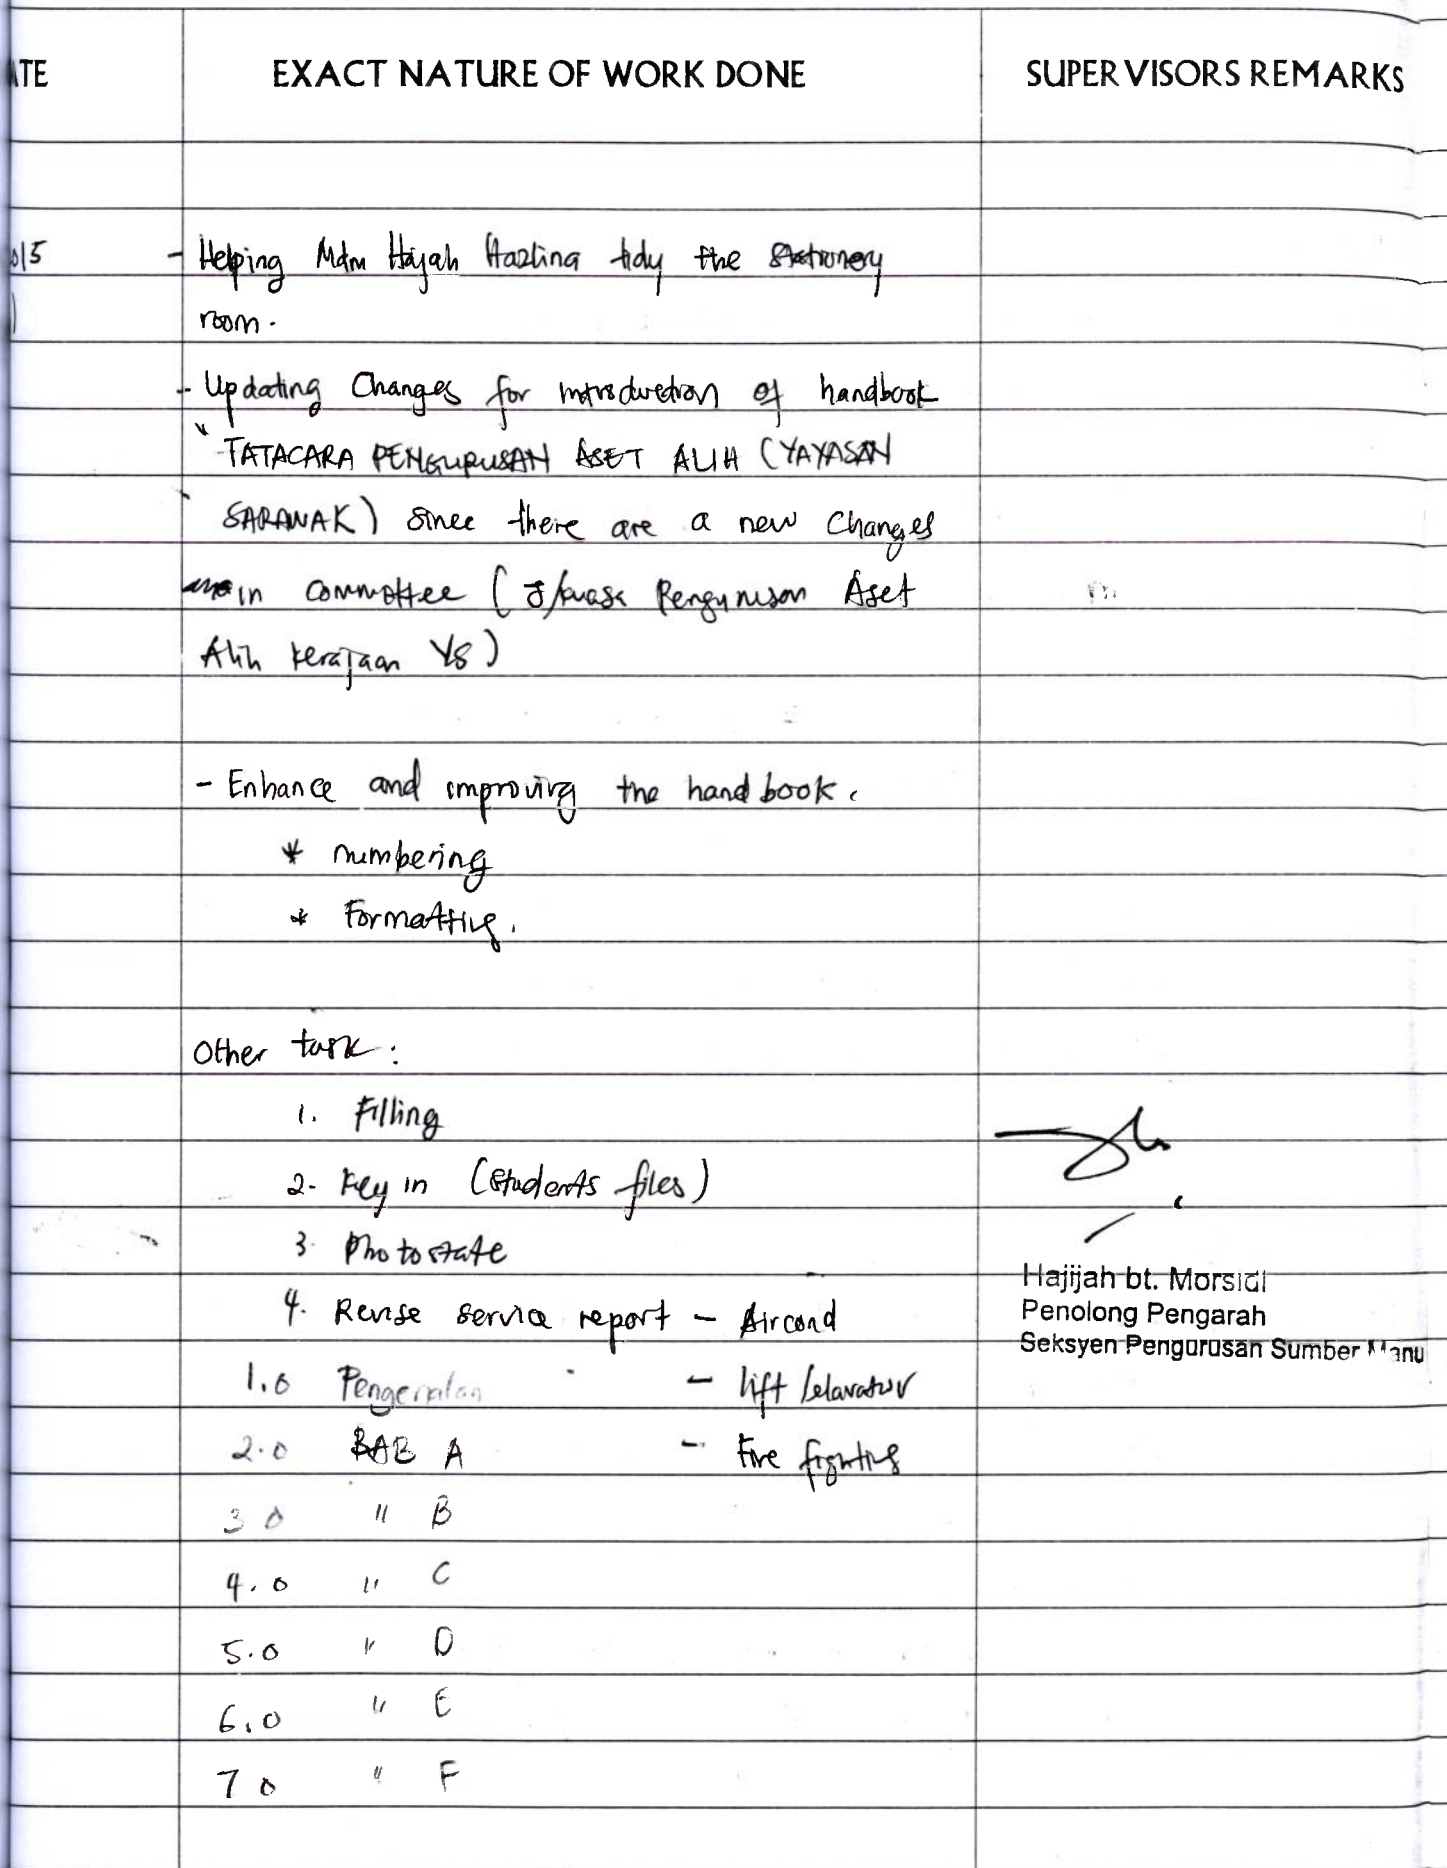 ATE EXACT NATURE OF WORK DONE SUPERVISORS REMARKS
015 - Helping Mdm Hajah Hazlina tidy the stationery
room.
- Updating Changes for introduction of handbook
" TATACARA PENGURUSAN ASET ALIH (YAYASAN
SARAWAK) since there are a new changes
in committee ( J/kuasa Pengurusan Aset
Alih kerajaan YS )
- Enhance and improving the handbook.
* numbering
* Formatting.
Other task :
1. Filling
2. Key in (students files)
3. Photostate
4. Revise service report - Aircond
1.0 Pengenalan - lift /elavator
2.0 BAB A - Fire fighting
3.0 " B
4.0 " C
5.0 " D
6.0 " E
7.0 " F
Hajijah bt. Morsidi
Penolong Pengarah
Seksyen Pengurusan Sumber Manu